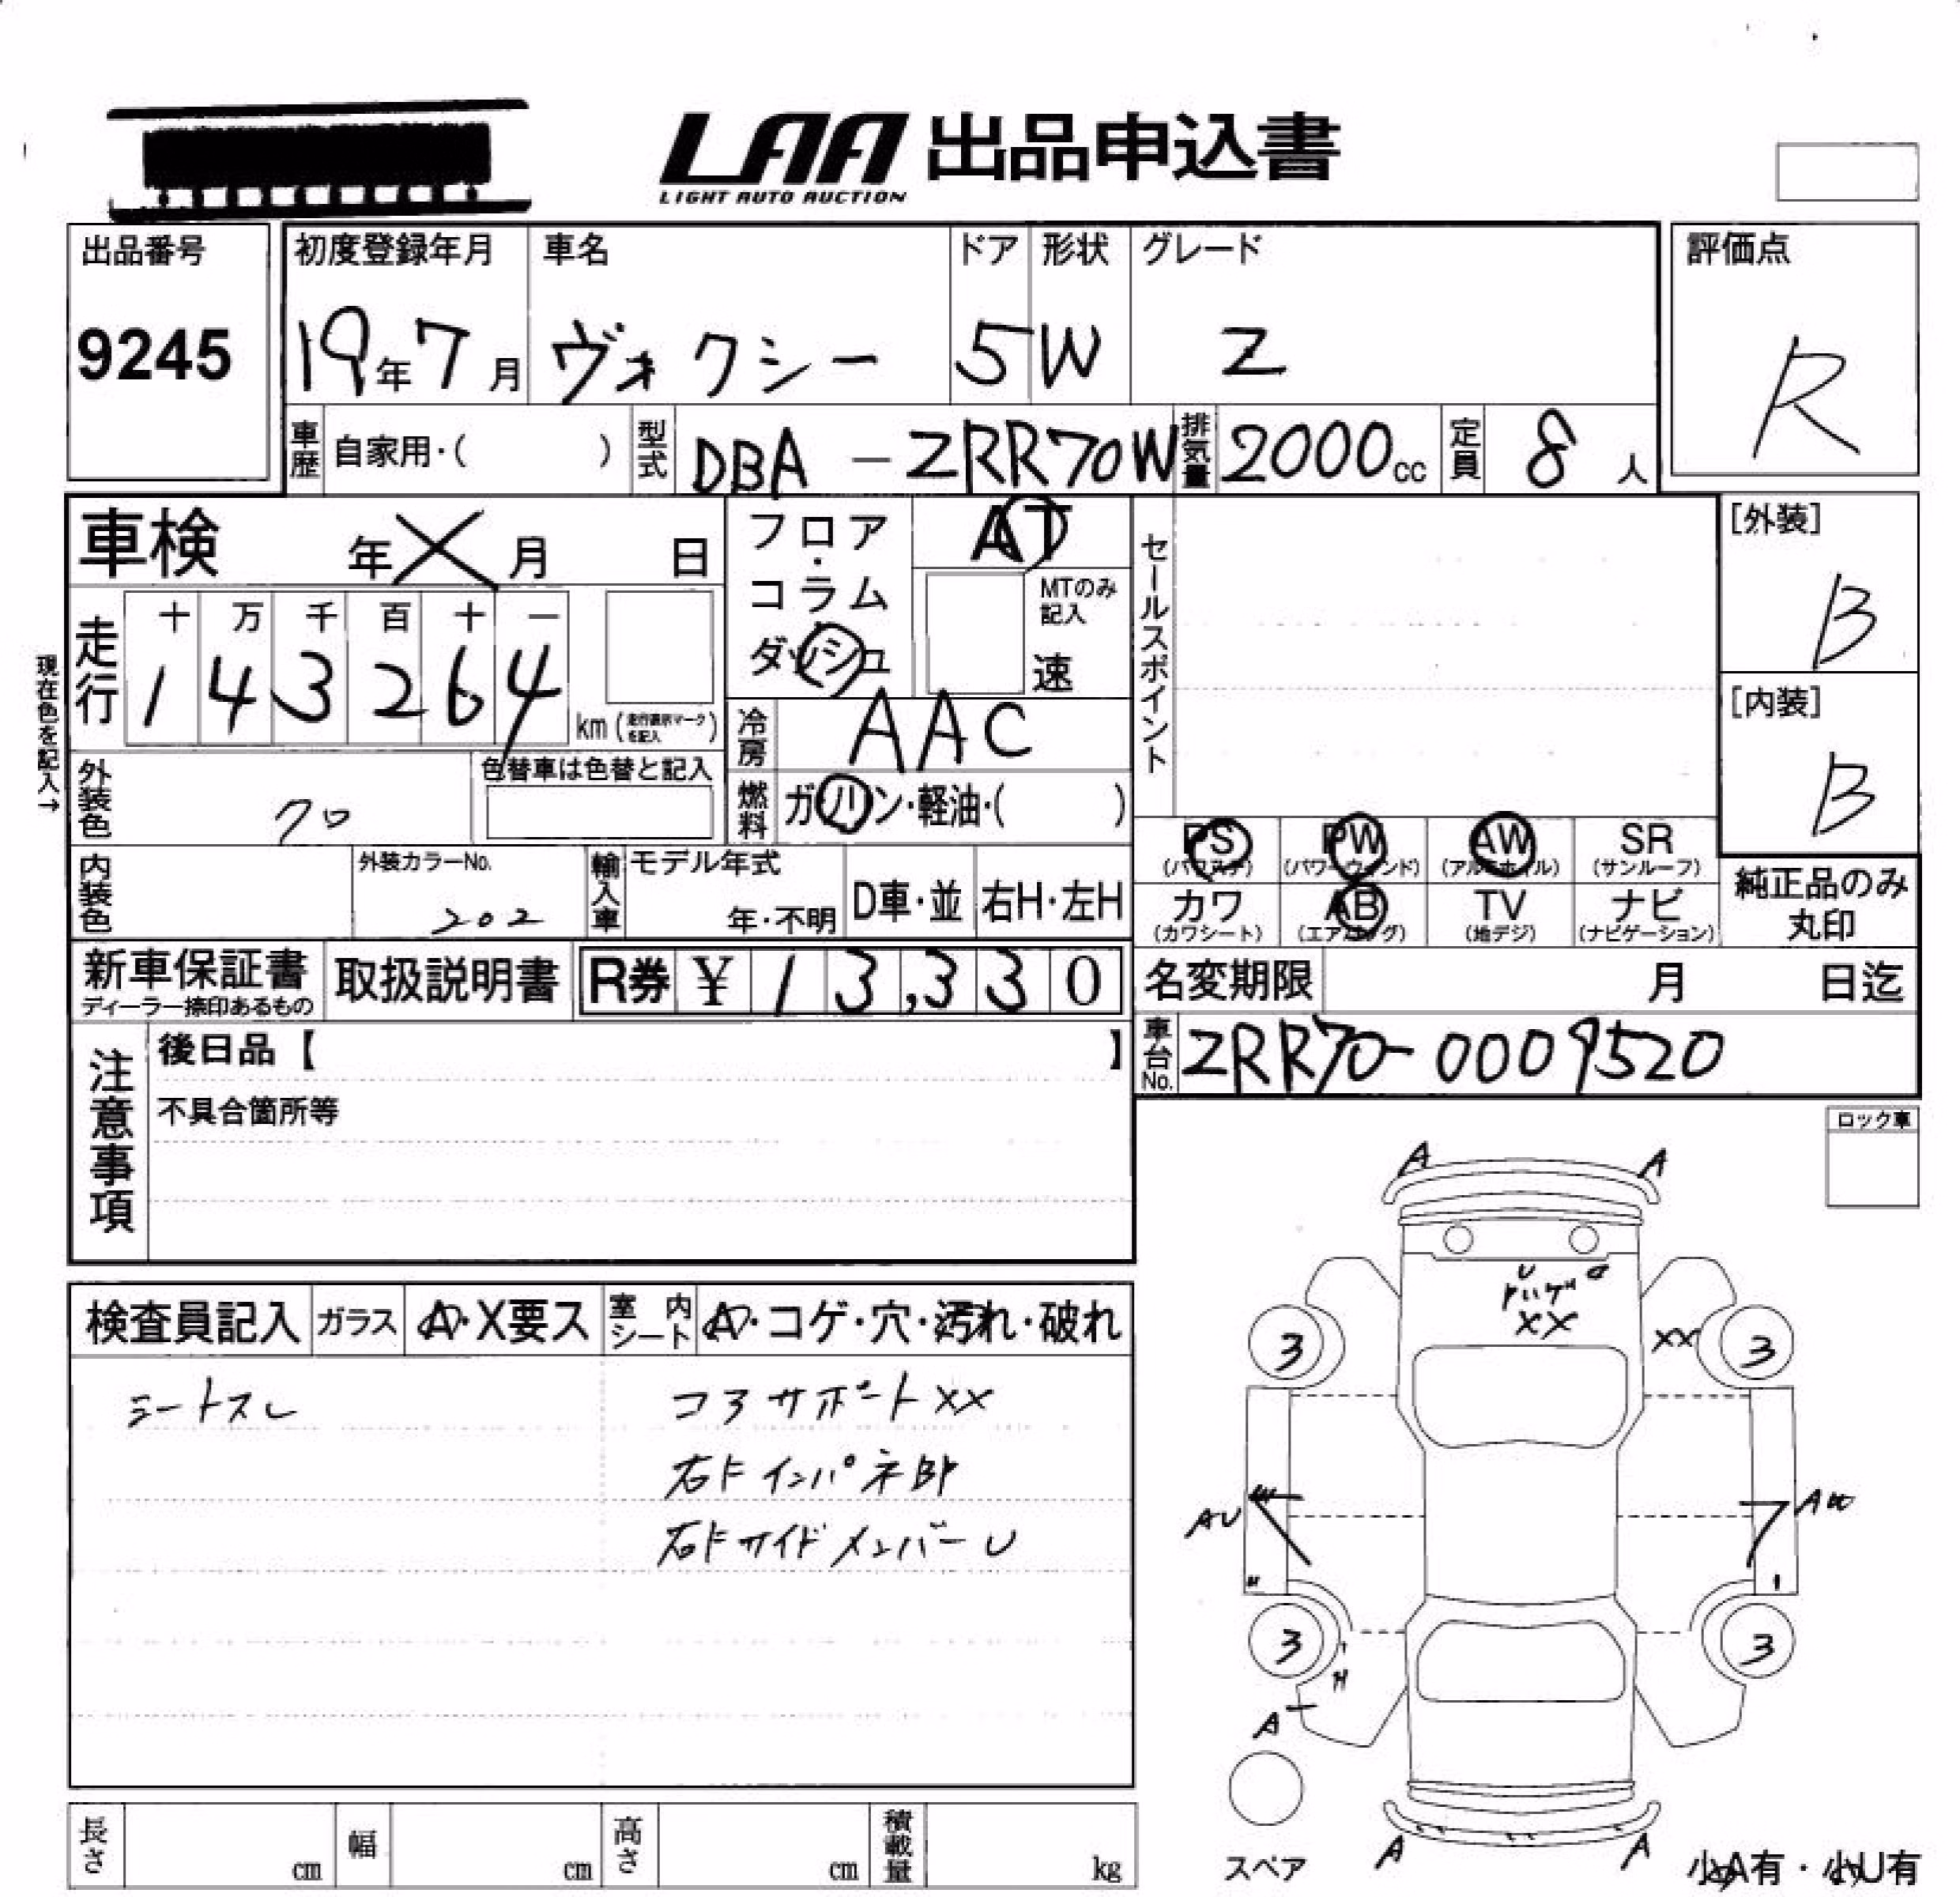 LAA 出品申込書
LIGHT AUTO AUCTION
出品番号
9245
初度登録年月
19年7月
車名
ヴォクシー
ドア
5
形状
W
グレード
Z
評価点
R
車歴 自家用・( )
型式 DBA-ZRR70W
排気量 2000cc
定員 8人
車検 年X月 日
フロア・コラム・ダッシュ
AT
MTのみ記入
速
セールスポイント
[外装]
B
[内装]
B
現在色を記入→
走行
十 万 千 百 十 一
1 4 3 2 6 4
km(走行表示マークを記入)
冷房 AAC
燃料 ガソリン・軽油・( )
外装色 クロ
色替車は色替と記入
PS (パワステ)
PW (パワーウィンド)
AW (アルミホイル)
SR (サンルーフ)
カワ (カワシート)
AB (エアバッグ)
TV (地デジ)
ナビ (ナビゲーション)
純正品のみ丸印
内装色
外装カラーNo.
202
輸入車
モデル年式
年・不明
D車・並
右H・左H
新車保証書
ディーラー捺印あるもの
取扱説明書
R券 ¥ 1 3,3 3 0
名変期限 月 日迄
車台No. ZRR70-0009520
注意事項
後日品【 】
不具合箇所等
ロック車
検査員記入
ガラス A・X要ス
室内シート A・コゲ・穴・汚れ・破れ
シートスレ
コアサポートXX
右Fインパネ部
右FサイドメンバーU
A A
U
XX
XX
3 3
AU
3 3
A
A A
スペア
小A有・小U有
長さ cm
幅 cm
高さ cm
積載量 kg